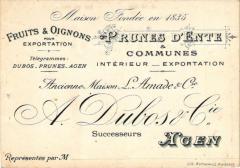 Maison Fondée en 1835
FRUITS & OIGNONS
POUR
EXPORTATION
Télégrammes:
DUBOS_PRUNES_AGEN
PRUNES D'ENTE
&
COMMUNES
INTÉRIEUR _ EXPORTATION
Ancienne Maison L. Amade & Cie
A. Dubos & Cie
Successeurs
AGEN
Représentés par M